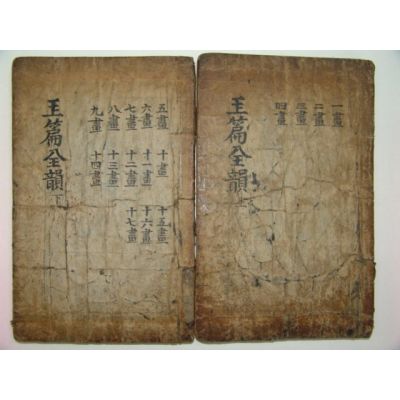 一畫
二畫
三畫
四畫
玉篇全韻上
五畫 十畫 十五畫
六畫 十一畫 十六畫
七畫 十二畫 十七畫
八畫 十三畫
九畫 十四畫
玉篇全韻下